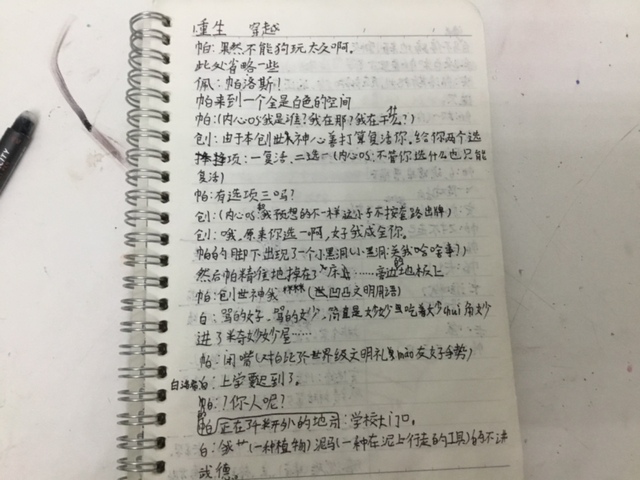 重生 穿越
帕:果然不能狗玩太久啊。
此处省略一些
佩:帕洛斯!
帕来到一个全是白色的空间
帕:(内心os我是谁?我在那?我在干什么?)
创:由于本创世神心善打算复活你,给你两个选
择项:一复活,二选一(内心os:不管你选什么也只能
复活)
帕:有选项三吗?
创:(内心os:我预想的不一样这小子不按套路出牌)
创:哦,原来你选一啊,好我成全你。
帕的脚下出现了一个小黑洞(小黑洞:关我啥事?)
然后帕精准地掉在了床……旁边地板上
帕:创世神我****(凹凸文明用语)
白:骂的好,骂的妙,简直是妙妙
进了米奇妙妙屋……
帕:闭嘴(对白比了世界级文明礼貌友好手势)
白:上学要迟到了。
帕:?你人呢?
帕正在 的地司:学校大门口。
白:艹(一种植物)泥马(一种在泥上行走的工具)的不讲
武德。